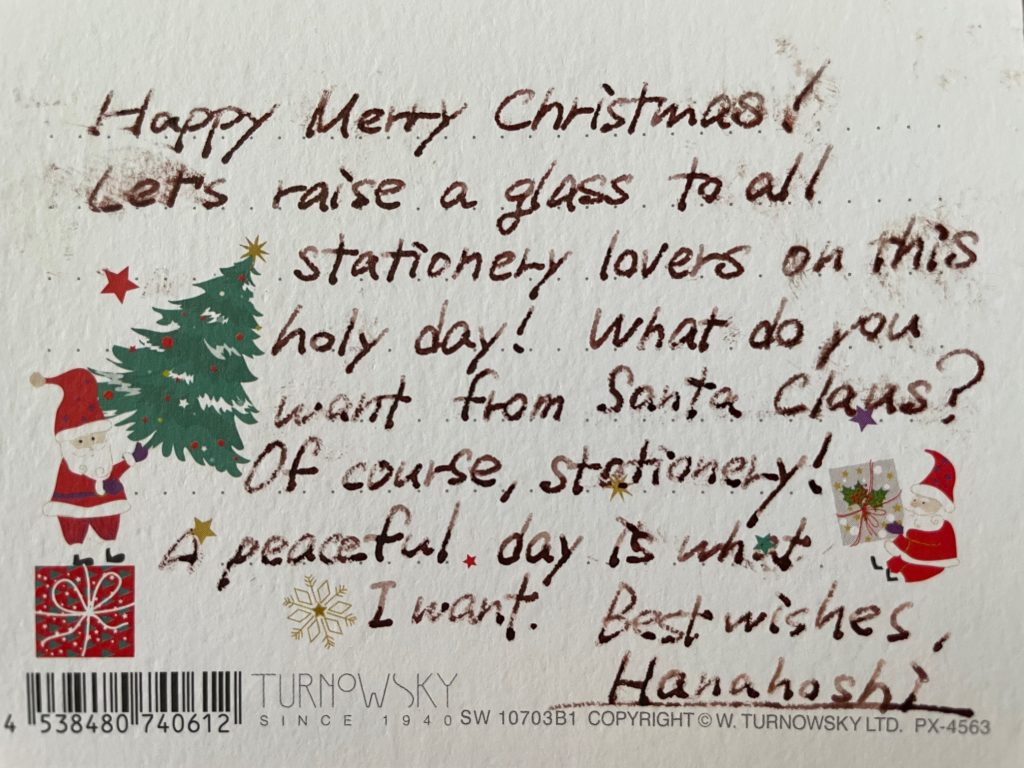 Happy Merry Christmas!
Let's raise a glass to all
stationery lovers on this
holy day! What do you
want from Santa Claus?
Of course, stationery!
A peaceful day is what
I want. Best wishes,
Hanahoshi
4 538480 740612
TURNOWSKY
SINCE 1940 SW 10703B1 COPYRIGHT © W. TURNOWSKY LTD. PX-4563